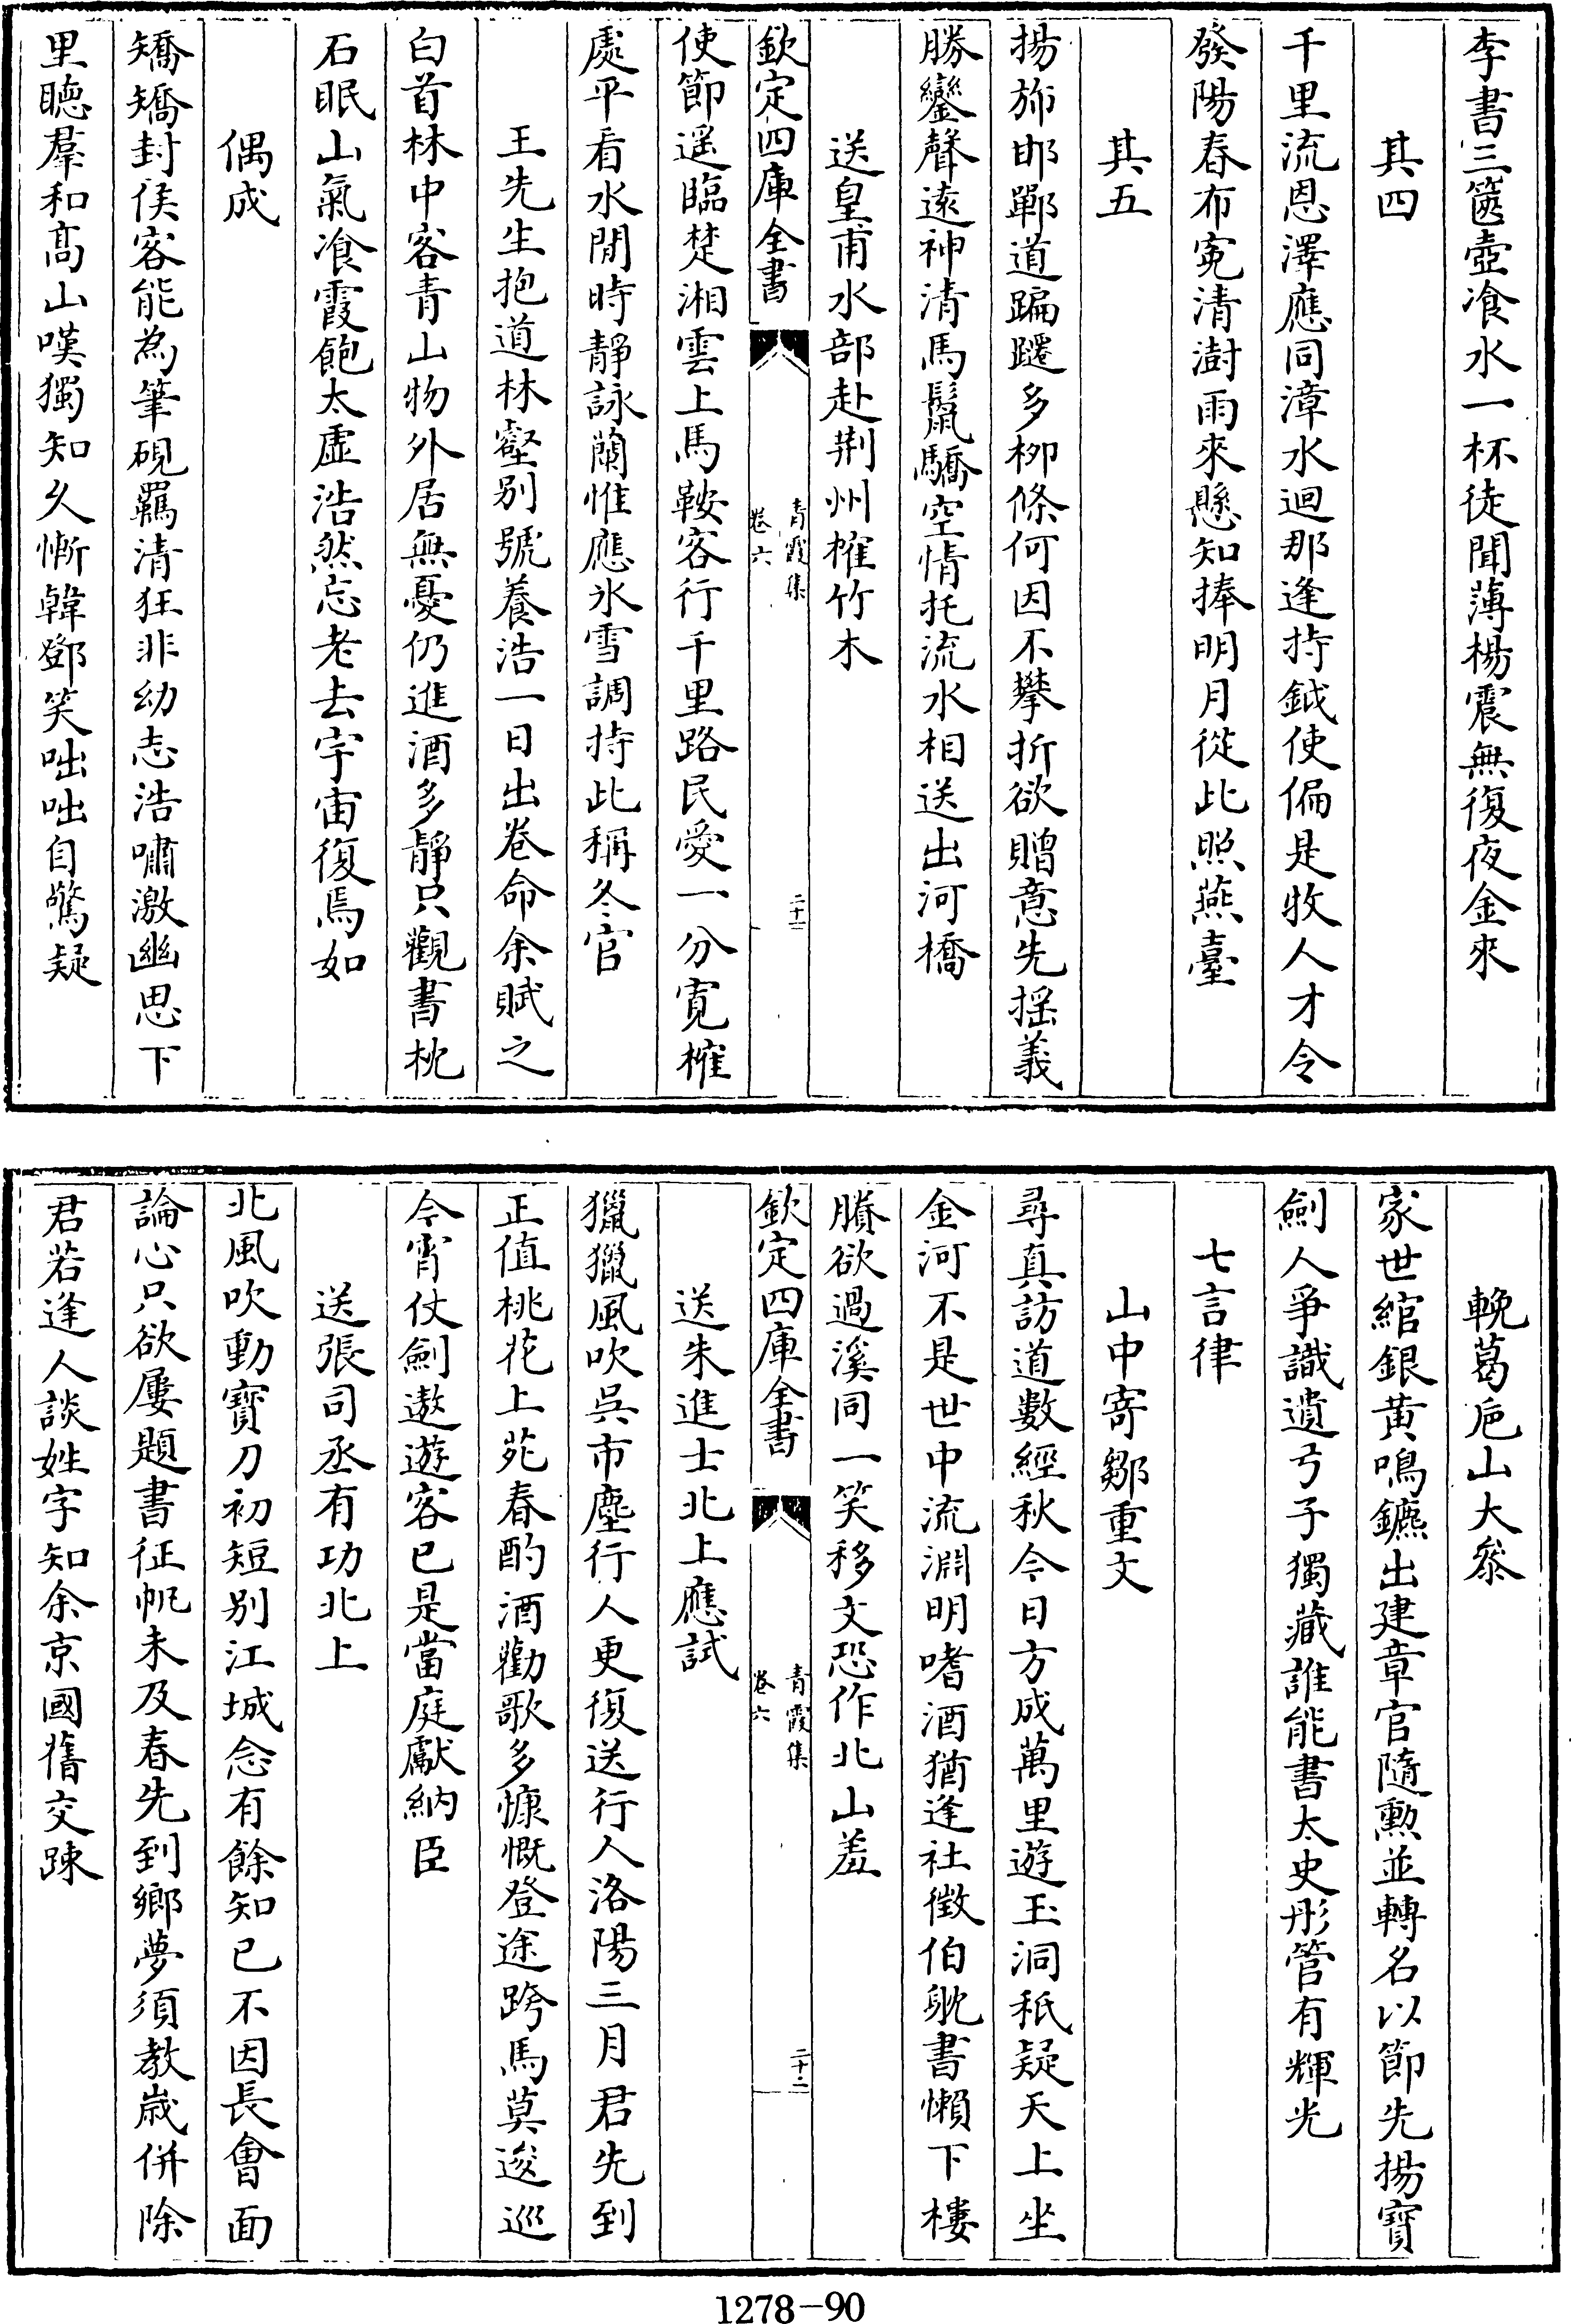 李書三篋壺飡水一杯徒聞薄楊震無復夜金來
其四
千里流恩澤應同漳水迴那逢持鉞使偏是牧人才令
發陽春布寃清澍雨來懸知捧明月從此照燕臺
其五
揚斾邯鄲道蹁躚多栁條何因不攀折欲贈意先摇義
勝鑾聲逺神清馬鬛驕空情托流水相送出河橋
送皇甫水部赴荆州榷竹木
欽定四庫全書
青霞集
卷六
二十一
使節遥臨楚湘雲上馬鞍客行千里路民愛一分寛榷
處平看水閒時靜詠蘭惟應氷雪調持此稱冬官
王先生抱道林壑别號養浩一日出巻命余賦之
白首林中客青山物外居無憂仍進酒多靜只觀書枕
石眠山氣飡霞飽太虚浩然忘老去宇宙復焉如
偶成
矯矯封侯客能為筆硯羈清狂非幼志浩嘯激幽思下
里聴羣和髙山嘆獨知乆慚韓鄧笑咄咄自驚疑
輓葛巵山大叅
家世綰銀黄鳴鑣出建章官隨勲並轉名以節先揚寳
劍人爭識遺弓子獨藏誰能書太史彤管有輝光
七言律
山中寄鄒重文
尋真訪道數經秋今日方成萬里遊玉洞秖疑天上坐
金河不是世中流淵明嗜酒猶逢社徴伯躭書懶下樓
賸欲過溪同一笑移文恐作北山羞
欽定四庫全書
青霞集
卷六
二十二
送朱進士北上應試
獵獵風吹呉市塵行人更復送行人洛陽三月君先到
正值桃花上苑春酌酒勸歌多慷慨登途跨馬莫逡巡
今宵仗劍遨遊客已是當庭獻納臣
送張司丞有功北上
北風吹動寳刀初短别江城念有餘知已不因長會面
論心只欲屢題書征帆未及春先到鄉夢須教嵗併除
君若逢人談姓字知余京國舊交踈
1278-90